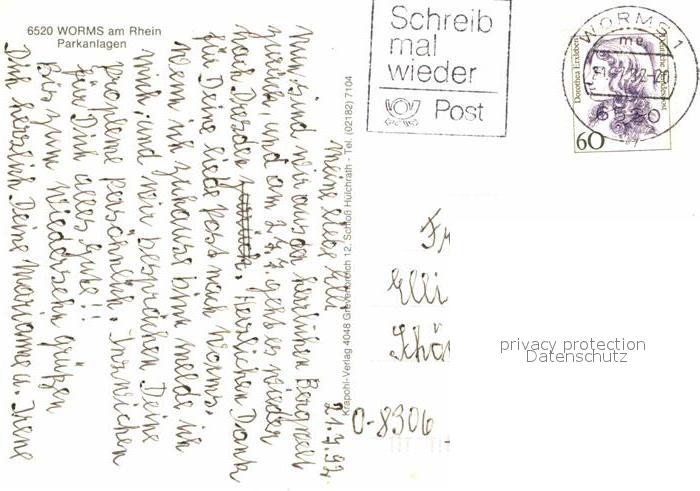 6520 WORMS am Rhein
Parkanlagen
Schreib
mal
wieder
Post
WORMS 1
Dorothea Erxleben
Deutsche Bundespost
60
Krapohl-Verlag 4048 Grevenbroich 12, Schloß Hülchrath - Tel. (02182) 7104
21.7.92
Meine liebe Elli
Nun sind wir aus der herrlichen Bergwelt
zurück, und am 27.7 geht es wieder
nach Dresden zurück. Herzlichen Dank
für Deine liebe Post nach Worms.
Wenn ich zuhause bin, melde ich
mich, und wir besprechen Deine
Probleme persönlich. Inzwischen
für Dich alles Gute!!
Bis zum Wiedersehn grüßen
Dich herzlich Deine Marianne u. Irene
Fr
Elli
Schön
O-8306
privacy protection
Datenschutz